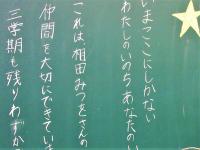 いまここにしかない
わたしのいのちあなたのい
これは相田みつをさんの
仲間を大切にできてい
三学期も残りわずか